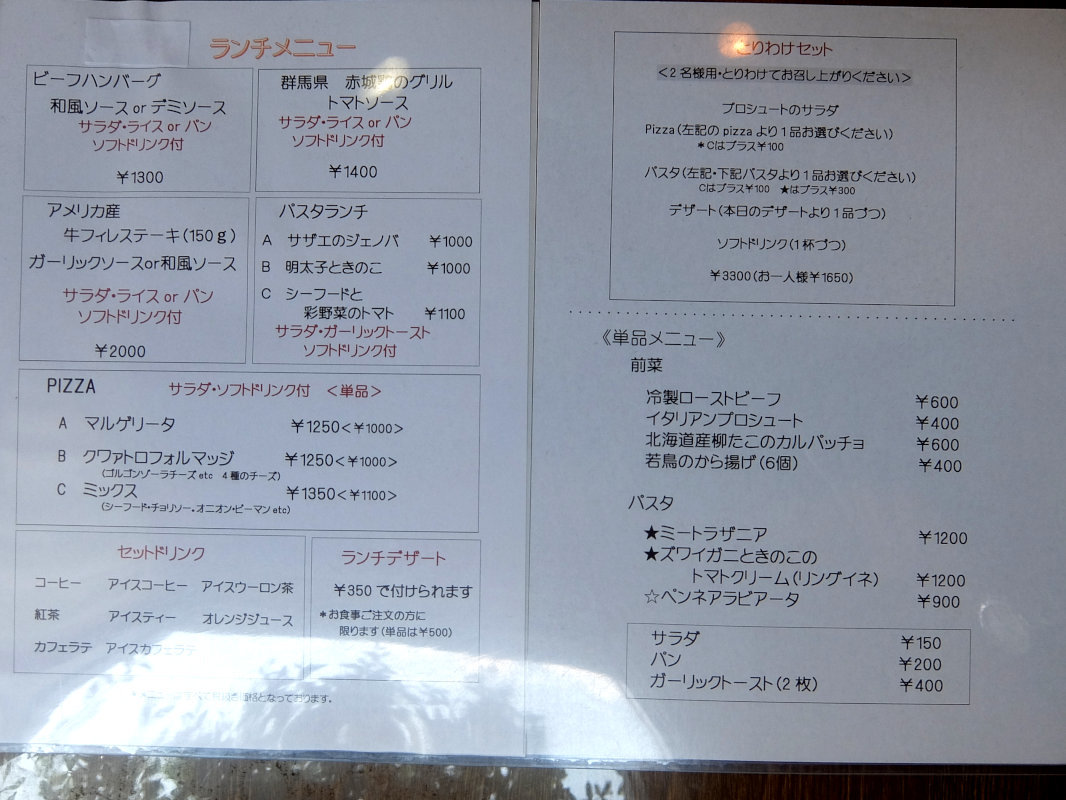 ランチメニュー
ビーフハンバーグ
和風ソース or デミソース
サラダ・ライス or パン
ソフトドリンク付
￥1300
群馬県 赤城のグリル
トマトソース
サラダ・ライス or パン
ソフトドリンク付
￥1400
アメリカ産
牛フィレステーキ(150ｇ)
ガーリックソースor和風ソース
サラダ・ライス or パン
ソフトドリンク付
￥2000
パスタランチ
A サザエのジェノバ ￥1000
B 明太子ときのこ ￥1000
C シーフードと
彩野菜のトマト ￥1100
サラダ・ガーリックトースト
ソフトドリンク付
PIZZA サラダ・ソフトドリンク付 ＜単品＞
A マルゲリータ ￥1250＜￥1000＞
B クワァトロフォルマッジ ￥1250＜￥1000＞
(ゴルゴンゾーラチーズ etc 4種のチーズ)
C ミックス ￥1350＜￥1100＞
(シーフード・チョリソー。オニオン・ピーマン etc)
セットドリンク
コーヒー アイスコーヒー アイスウーロン茶
紅茶 アイスティー オレンジジュース
カフェラテ アイスカフェラテ
ランチデザート
￥350 で付けられます
＊お食事ご注文の方に
限ります(単品は￥500)
価格となっております。
とりわけセット
＜2名様用・とりわけてお召し上がりください＞
プロシュートのサラダ
Pizza(左記の pizza より1品お選びください)
＊Cはプラス￥100
パスタ(左記・下記パスタより1品お選びください)
Cはプラス￥100 ★はプラス￥300
デザート(本日のデザートより1品づつ)
ソフトドリンク(1杯づつ)
￥3300(お一人様￥1650)
《単品メニュー》
前菜
冷製ローストビーフ ￥600
イタリアンプロシュート ￥400
北海道産柳たこのカルパッチョ ￥600
若鳥のから揚げ(6個) ￥400
パスタ
★ミートラザニア ￥1200
★ズワイガニときのこの
トマトクリーム(リングイネ) ￥1200
☆ペンネアラビアータ ￥900
サラダ ￥150
パン ￥200
ガーリックトースト(2枚) ￥400